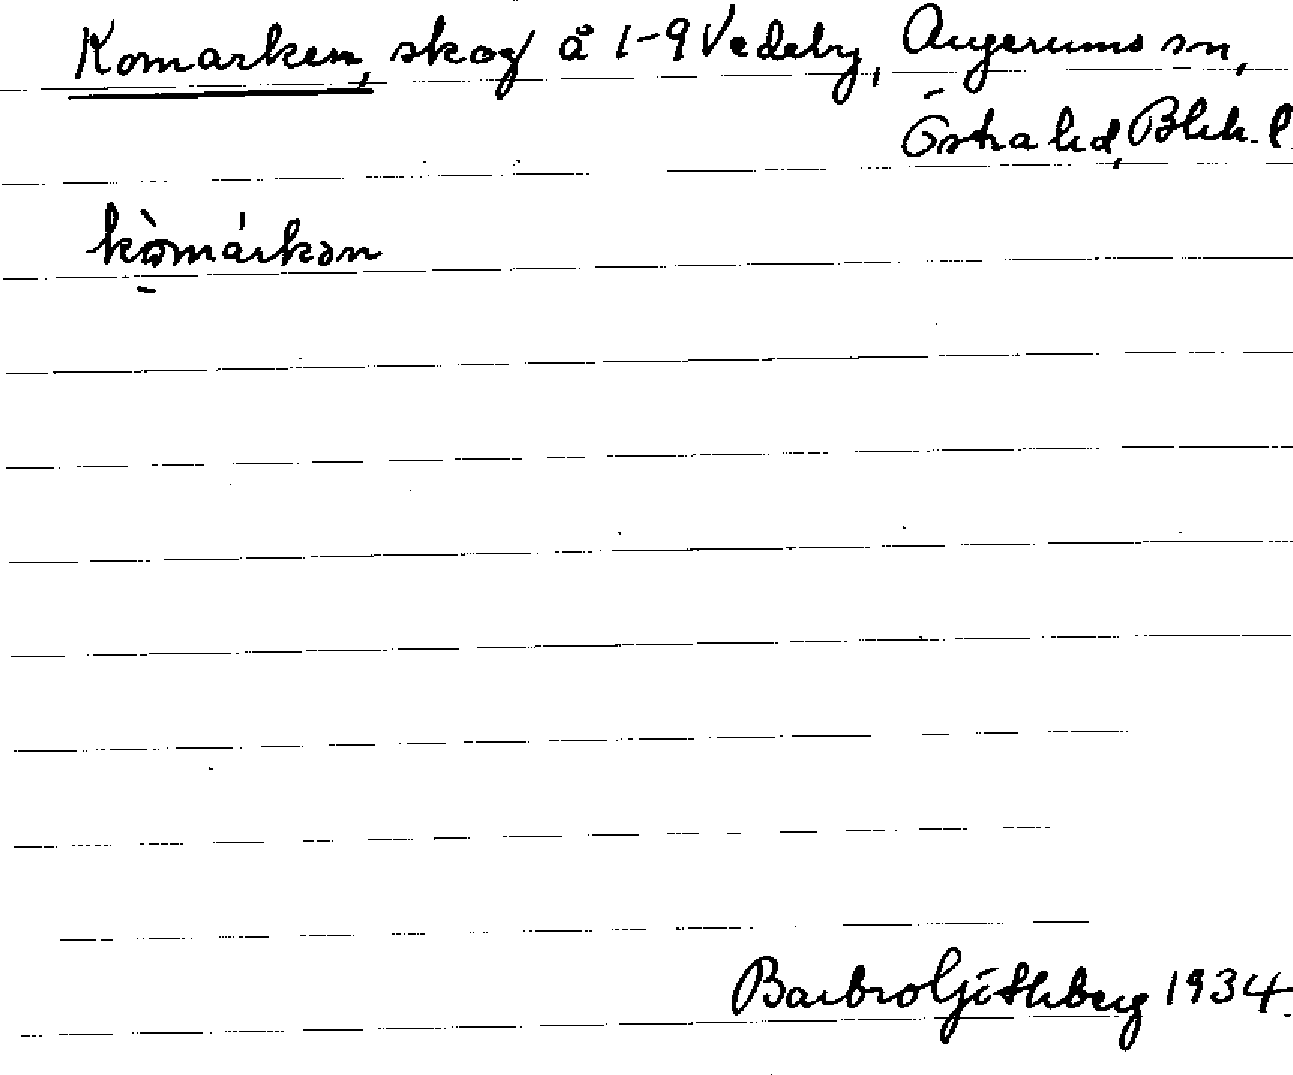 Komarken, skog å 1-9 Vedeby, Augerums sn,
Östra hd, Blek. l
kòmárkən
Barbro Göthberg 1934.